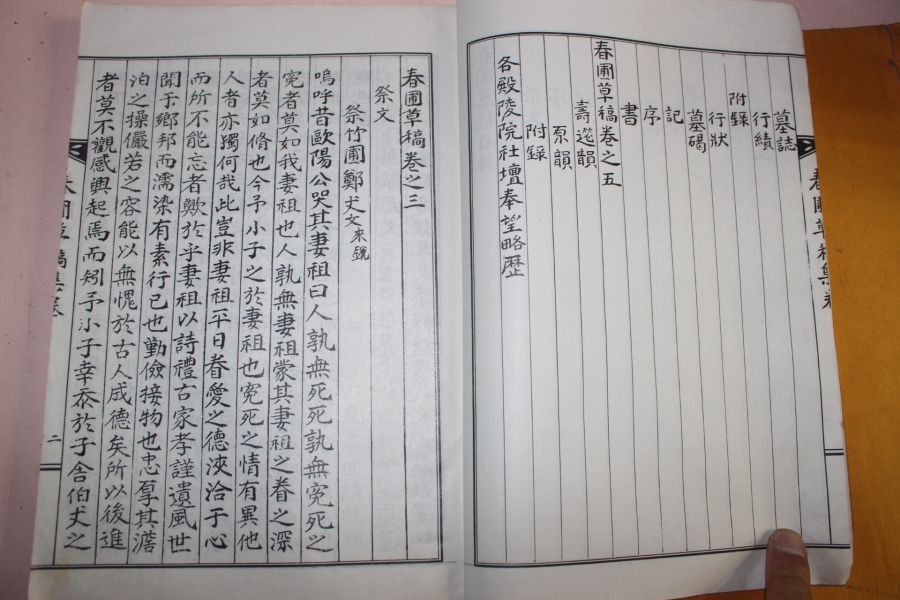 墓誌
行績
附錄
行狀
墓碣
記
序
書
春圃草稿卷之五
壽筵韻
原韻
附錄
各殿陵院社壇奉望略歷
春圃草稿卷之三
祭文
祭竹圃鄭丈文來錫
嗚呼昔歐陽公哭其妻祖曰人孰無死死孰無冤死之
冤者莫如我妻祖也人孰無妻祖蒙其妻祖之眷之深
者莫如脩也今予小子之於妻祖也冤死之情有異他
人者亦獨何哉此豈非妻祖平日眷愛之德浹洽于心
而所不能忘者歟於乎妻祖以詩禮古家孝謹遺風世
聞于鄉邦而濡染有素行己也勤儉接物也忠厚其澹
泊之操儼若之容能以無愧於古人成德矣所以後進
者莫不觀感興起焉而矧予小子幸忝於子舍伯丈之
二